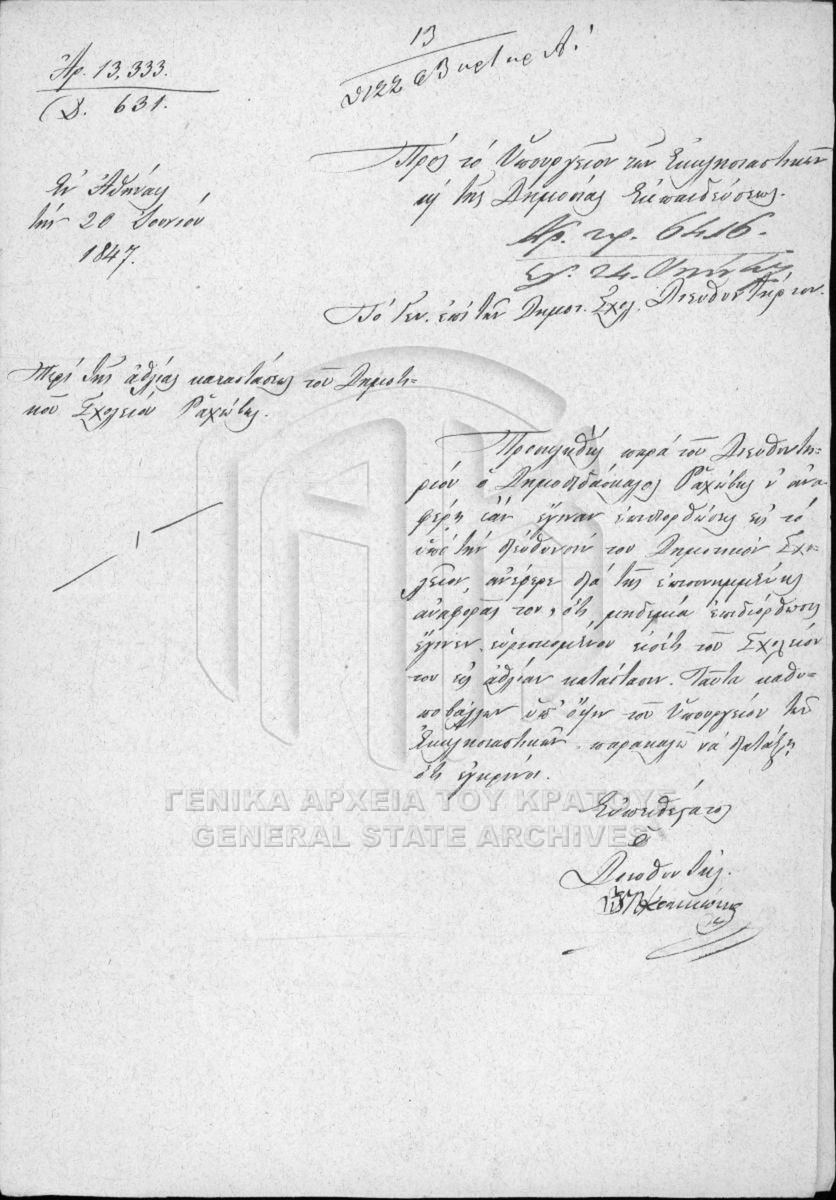 Ἀρ. 13,333.
Δ. 631.
13
Ἐν Ἀθήναις
τὴν 20 Ἰουνίου
1847.
Πρὸς τὸ Ὑπουργεῖον τῶν Ἐκκλησιαστικῶν
καὶ τῆς Δημοσίας Ἐκπαιδεύσεως.
Ἀρ. πρ. 6416.
24
Τὸ Γεν. ἐπὶ τῶν Δημοτ. Σχολ. Διευθυντήριον.
Περὶ τῆς ἀθλίας καταστάσεως τοῦ Δημοτι-
κοῦ Σχολείου Ῥαχώβης.
Προσκληθεὶς παρὰ τοῦ Διευθυντη-
ρίου ὁ Δημοδιδάσκαλος Ῥαχώβης ν' ἀνα-
φέρῃ ἐὰν ἔγιναν ἐπιδιορθώσεις εἰς τὸ
ὑπὸ τὴν διεύθυνσίν του Δημοτικὸν Σχο-
λεῖον, ἀνέφερε διὰ τῆς ἐπισυνημμένης
ἀναφορᾶς του, ὅτι μηδεμία ἐπιδιόρθωσις
ἔγινεν, εὑρισκομένου εἰσέτι τοῦ Σχολείου
του εἰς ἀθλίαν κατάστασιν. Ταῦτα καθυ-
ποβάλλων ὑπ' ὄψιν τοῦ Ὑπουργείου τῶν
Ἐκκλησιαστικῶν, παρακαλῶ νὰ διατάξῃ
ὅτι ἐγκρίνει.
Εὐπειθέστατος
ὁ
Διευθυντής.
ΓΕΝΙΚΑ ΑΡΧΕΙΑ ΤΟΥ ΚΡΑΤΟΥΣ
GENERAL STATE ARCHIVES